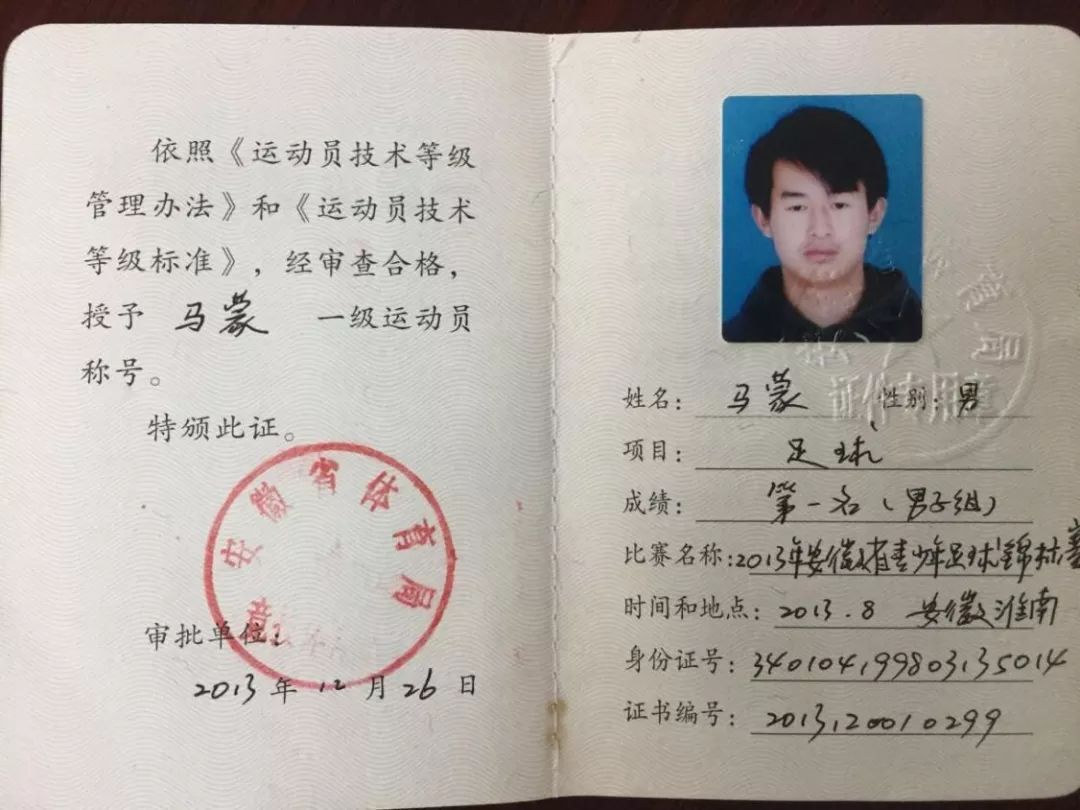 依照《运动员技术等级
管理办法》和《运动员技术
等级标准》，经审查合格，
授予 马蒙 一级运动员
称号。
特颁此证。
安徽省体育局
审批单位：
2013年12月26日
证件专用章
姓名：马蒙 性别：男
项目：足球
成绩：第一名（男子组）
比赛名称：2013年安徽省青少年足球锦标赛
时间和地点：2013.8 安徽淮南
身份证号：340104199803135014
证书编号：2013120010299